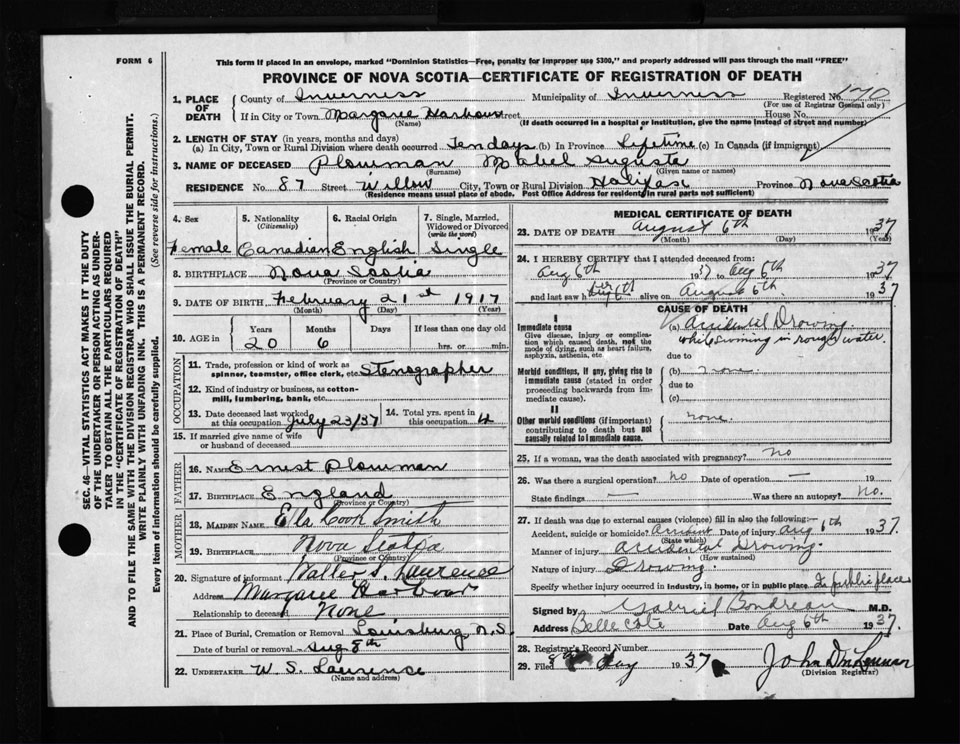 FORM 6
This form if placed in an envelope, marked "Dominion Statistics—Free, penalty for improper use $300," and properly addressed will pass through the mail "FREE"
PROVINCE OF NOVA SCOTIA—CERTIFICATE OF REGISTRATION OF DEATH
1. PLACE OF DEATH
County of Inverness Municipality of Inverness Registered No. 170
(For use of Registrar General only)
If in City or Town Margaree Harbour Street House No.
(Name) (If death occurred in a hospital or institution, give the name instead of street and number)
2. LENGTH OF STAY (in years, months and days)
(a) In City, Town or Rural Division where death occurred Ten days (b) In Province Lifetime (c) In Canada (if immigrant)
3. NAME OF DECEASED Plowman Mabel Augusta
(Surname) (Given name or names)
RESIDENCE No. 87 Street Willow City, Town or Rural Division Halifax Province Nova Scotia
(Residence means usual place of abode. Post Office Address for residents in rural parts not sufficient)
4. Sex
Female
5. Nationality (Citizenship)
Canadian
6. Racial Origin
English
7. Single, Married, Widowed or Divorced (write the word)
Single
8. BIRTHPLACE Nova Scotia
(Province or Country)
9. DATE OF BIRTH February 21st 1917
(Month) (Day) (Year)
10. AGE in
Years Months Days If less than one day old
20 6 hrs. or min.
OCCUPATION
11. Trade, profession or kind of work as spinner, teamster, office clerk, etc. Stenographer
12. Kind of industry or business, as cotton-mill, lumbering, bank, etc.
13. Date deceased last worked at this occupation July 23/37
14. Total yrs. spent in this occupation 4
15. If married give name of wife or husband of deceased
FATHER
16. NAME Ernest Plowman
17. BIRTHPLACE England
(Province or Country)
MOTHER
18. MAIDEN NAME Ella Cook Smith
19. BIRTHPLACE Nova Scotia
(Province or Country)
20. Signature of informant Walter S. Lawrence
Address Margaree Harbour
Relationship to deceased None
21. Place of Burial, Cremation or Removal Louisburg, N.S.
Date of burial or removal Aug 8th
22. UNDERTAKER W. S. Lawrence
(Name and address)
MEDICAL CERTIFICATE OF DEATH
23. DATE OF DEATH August 6th 1937
(Month) (Day) (Year)
24. I HEREBY CERTIFY that I attended deceased from:
Aug 6th 1937 to Aug 6th 1937
and last saw her alive on August 6th 1937
CAUSE OF DEATH
I
Immediate cause
Give disease, injury or complication which caused death, not the mode of dying, such as heart failure, asphyxia, asthenia, etc
(a) Accidental Drowing
while swiming in rough water.
due to
Morbid conditions, if any, giving rise to immediate cause (stated in order proceeding backwards from immediate cause).
(b) none.
due to
(c)
II
Other morbid conditions (if important) contributing to death but not causally related to immediate cause.
none.
25. If a woman, was the death associated with pregnancy? no
26. Was there a surgical operation? no Date of operation — 19
State findings — Was there an autopsy? No.
27. If death was due to external causes (violence) fill in also the following:—
Accident, suicide or homicide? Accident Date of injury Aug 6th 1937.
(State which)
Manner of injury Accidental Drowing.
(How sustained)
Nature of injury Drowing.
Specify whether injury occurred in industry, in home, or in public place In public place
Signed by Gabriel Boudreau M.D.
Address Belle Côte Date Aug 6th 1937.
28. Registrar's Record Number
29. Filed 1937
(Division Registrar)
SEC. 46—VITAL STATISTICS ACT MAKES IT THE DUTY
OF THE UNDERTAKER OR PERSON ACTING AS UNDER-
TAKER TO OBTAIN ALL THE PARTICULARS REQUIRED
IN THE "CERTIFICATE OF REGISTRATION OF DEATH"
AND TO FILE THE SAME WITH THE DIVISION REGISTRAR WHO SHALL ISSUE THE BURIAL PERMIT.
WRITE PLAINLY WITH UNFADING INK. THIS IS A PERMANENT RECORD.
Every item of information should be carefully supplied. (See reverse side for instructions.)